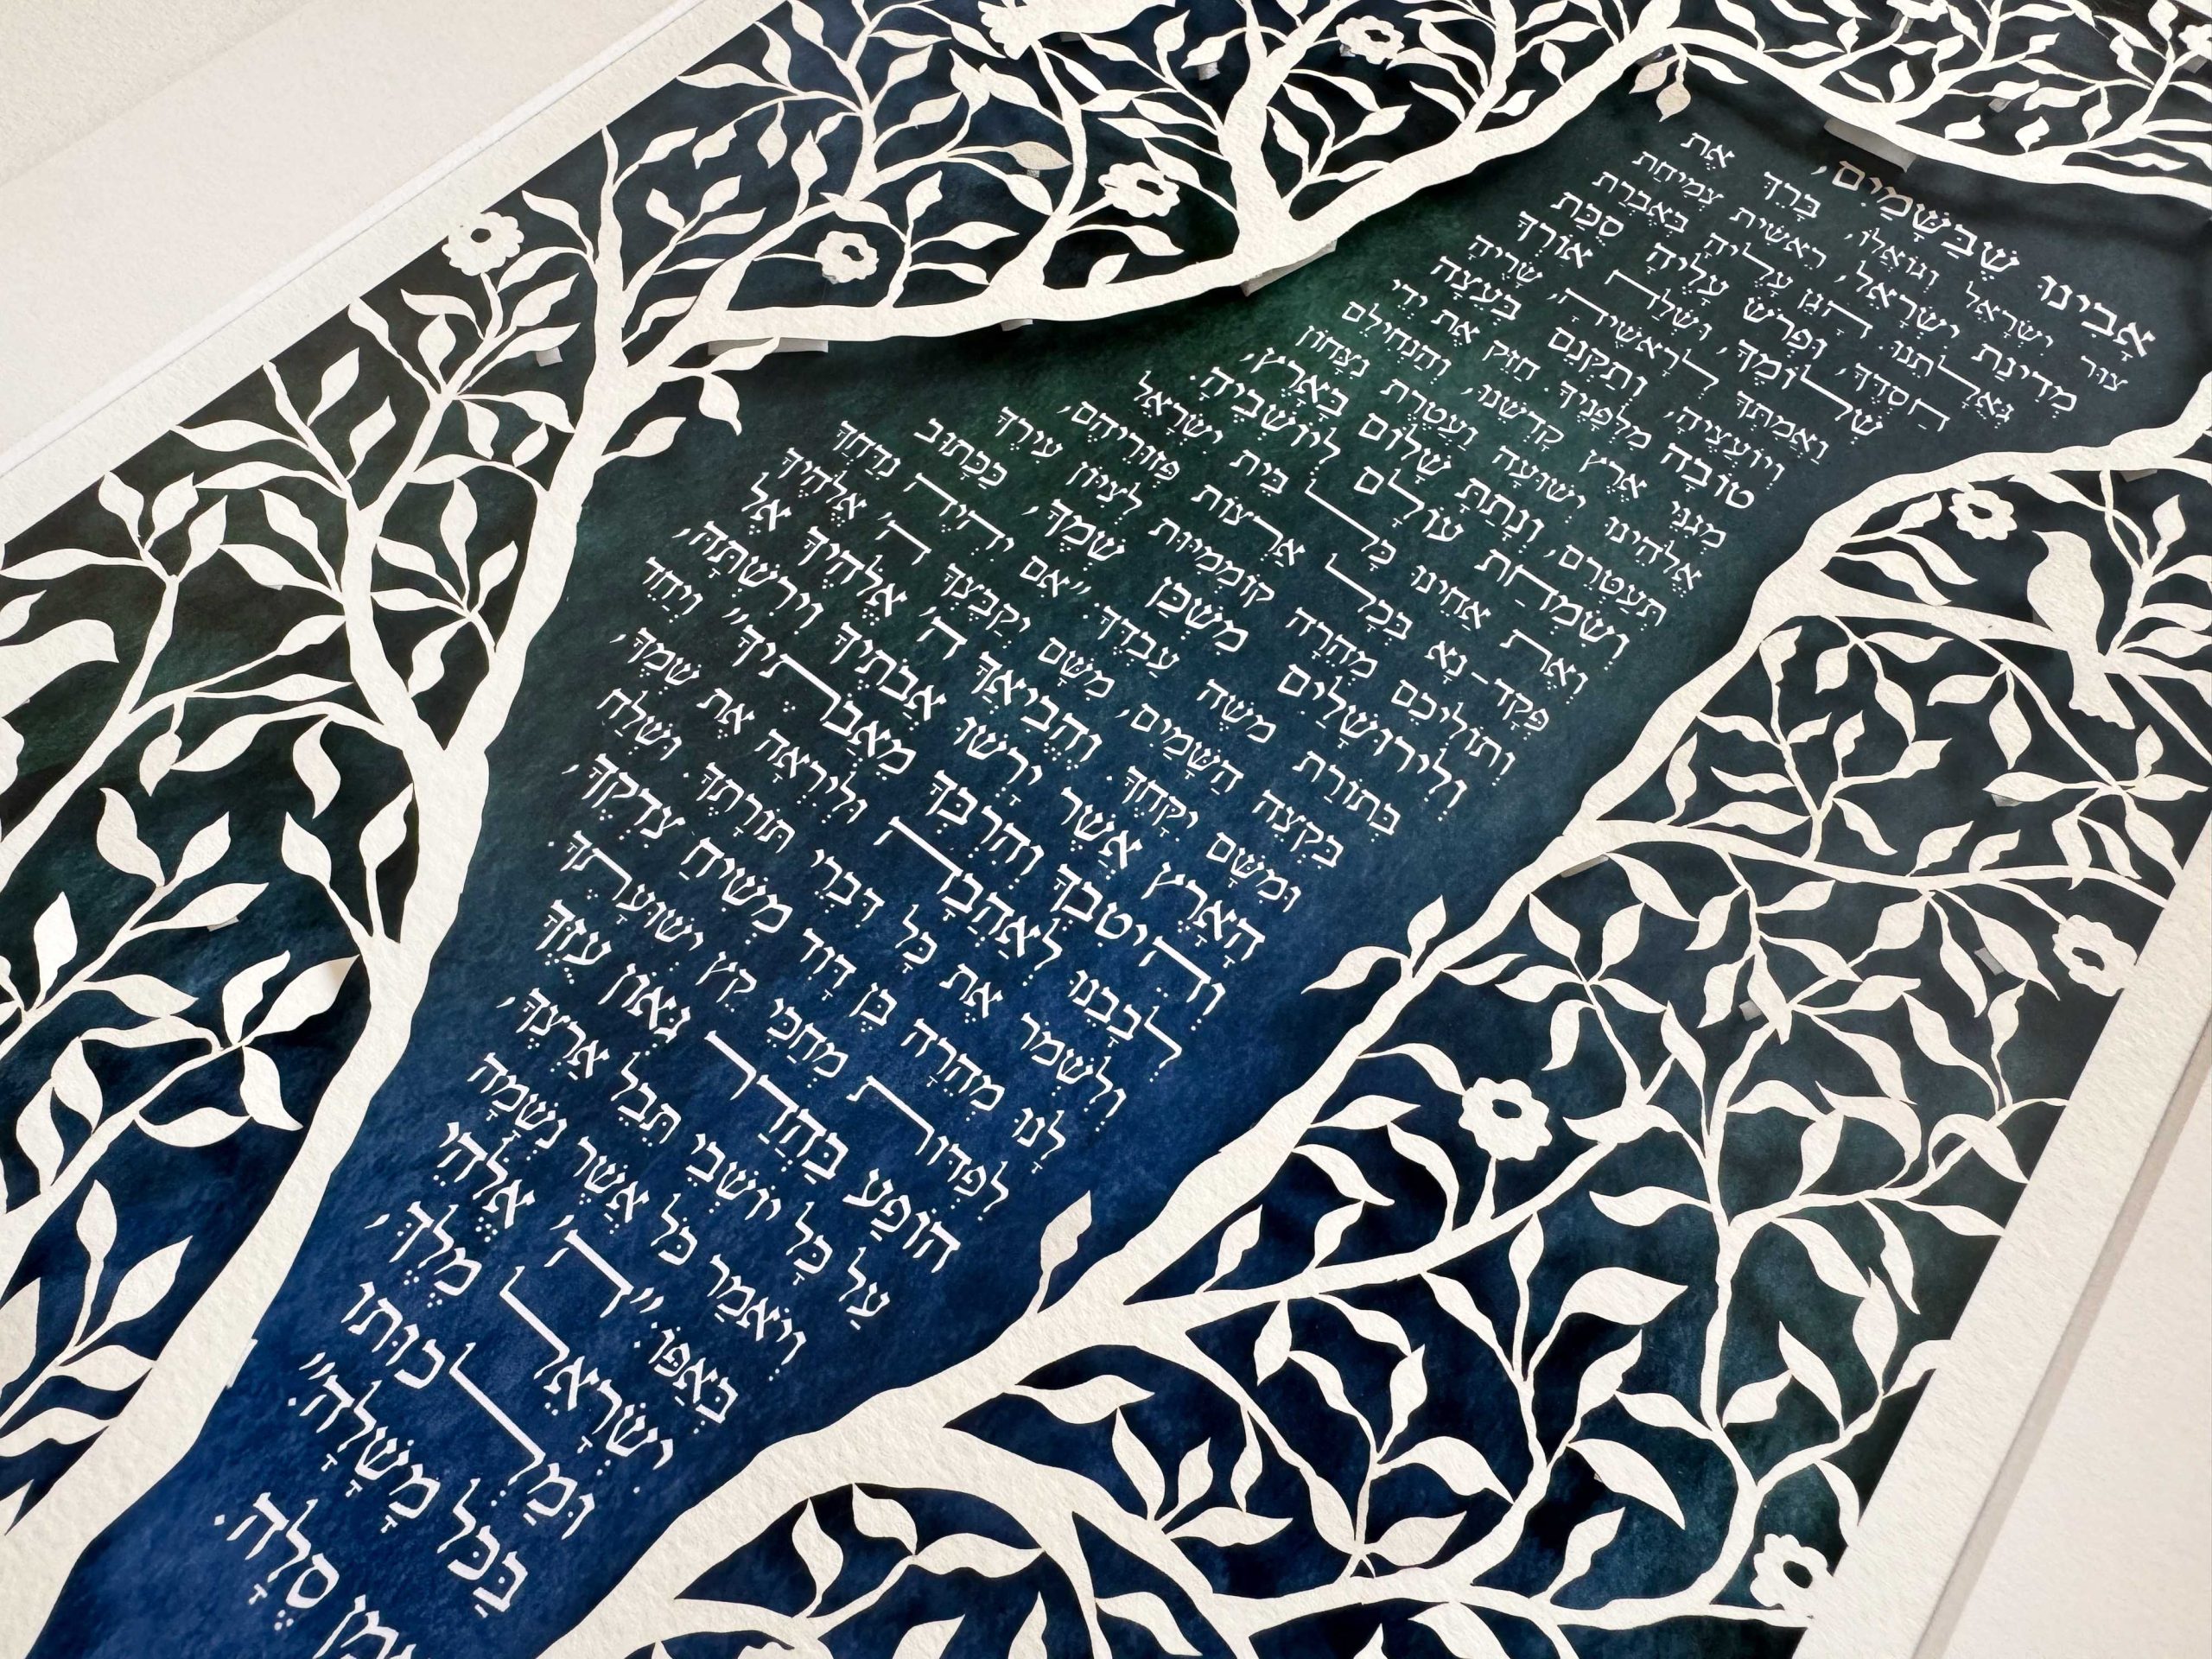 אָבִינוּ שֶׁבַּשָּׁמַיִם,
צוּר יִשְׂרָאֵל וְגוֹאֲלוֹ, בָּרֵךְ אֶת
מְדִינַת יִשְׂרָאֵל, רֵאשִׁית צְמִיחַת
גְּאֻלָּתֵנוּ. הָגֵן עָלֶיהָ בְּאֶבְרַת
חַסְדֶּךָ, וּפְרֹשׂ עָלֶיהָ סֻכַּת
שְׁלוֹמֶךָ, וּשְׁלַח אוֹרְךָ
וַאֲמִתְּךָ לְרָאשֶׁיהָ, שָׂרֶיהָ
וְיוֹעֲצֶיהָ, וְתַקְּנֵם בְּעֵצָה
טוֹבָה מִלְּפָנֶיךָ. חַזֵּק אֶת יְדֵי
מְגִנֵּי אֶרֶץ קָדְשֵׁנוּ, וְהַנְחִילֵם
אֱלֹהֵינוּ יְשׁוּעָה וַעֲטֶרֶת נִצָּחוֹן
תְּעַטְּרֵם, וְנָתַתָּ שָׁלוֹם בָּאָרֶץ,
וְשִׂמְחַת עוֹלָם לְיוֹשְׁבֶיהָ.
וְאֶת אַחֵינוּ כָּל בֵּית יִשְׂרָאֵל
פְּקָד-נָא בְּכָל אַרְצוֹת פְּזוּרֵיהֶם,
וְתוֹלִיכֵם מְהֵרָה קוֹמְמִיּוּת לְצִיּוֹן עִירֶךָ
וְלִירוּשָׁלַיִם מִשְׁכַּן שְׁמֶךָ, כַּכָּתוּב
בְּתוֹרַת מֹשֶׁה עַבְדֶּךָ: "אִם יִהְיֶה נִדַּחֲךָ
בִּקְצֵה הַשָּׁמַיִם, מִשָּׁם יְקַבֶּצְךָ ה' אֱלֹהֶיךָ
וּמִשָּׁם יִקָּחֶךָ. וֶהֱבִיאֲךָ ה' אֱלֹהֶיךָ אֶל
הָאָרֶץ אֲשֶׁר יָרְשׁוּ אֲבֹתֶיךָ וִירִשְׁתָּהּ,
וְהֵיטִבְךָ וְהִרְבְּךָ מֵאֲבֹתֶיךָ" וְיַחֵד
לְבָבֵנוּ לְאַהֲבָה וּלְיִרְאָה אֶת שְׁמֶךָ,
וְלִשְׁמֹר אֶת כָּל דִּבְרֵי תּוֹרָתֶךָ. וּשְׁלַח
לָנוּ מְהֵרָה בֶּן דָּוִד מְשִׁיחַ צִדְקֶךָ,
לִפְדּוֹת מְחַכֵּי קֵץ יְשׁוּעָתֶךָ.
הוֹפַע בַּהֲדַר גְּאוֹן עֻזֶּךָ
עַל כָּל יוֹשְׁבֵי תֵּבֵל אַרְצֶךָ,
וְיֹאמַר כֹּל אֲשֶׁר נְשָׁמָה
בְּאַפּוֹ: "ה' אֱלֹהֵי
יִשְׂרָאֵל מֶלֶךְ,
וּמַלְכוּתוֹ
בַּכֹּל מָשָׁלָה".
אָמֵן סֶלָה.